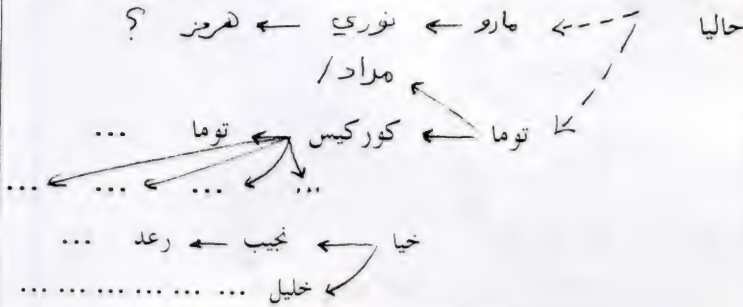 حاليا مارو نوري هرمز ؟
مراد /
توما كوركيس توما ...
... ... ... ...
خيا نجيب رعد ...
خليل ... ... ... ... ... ...